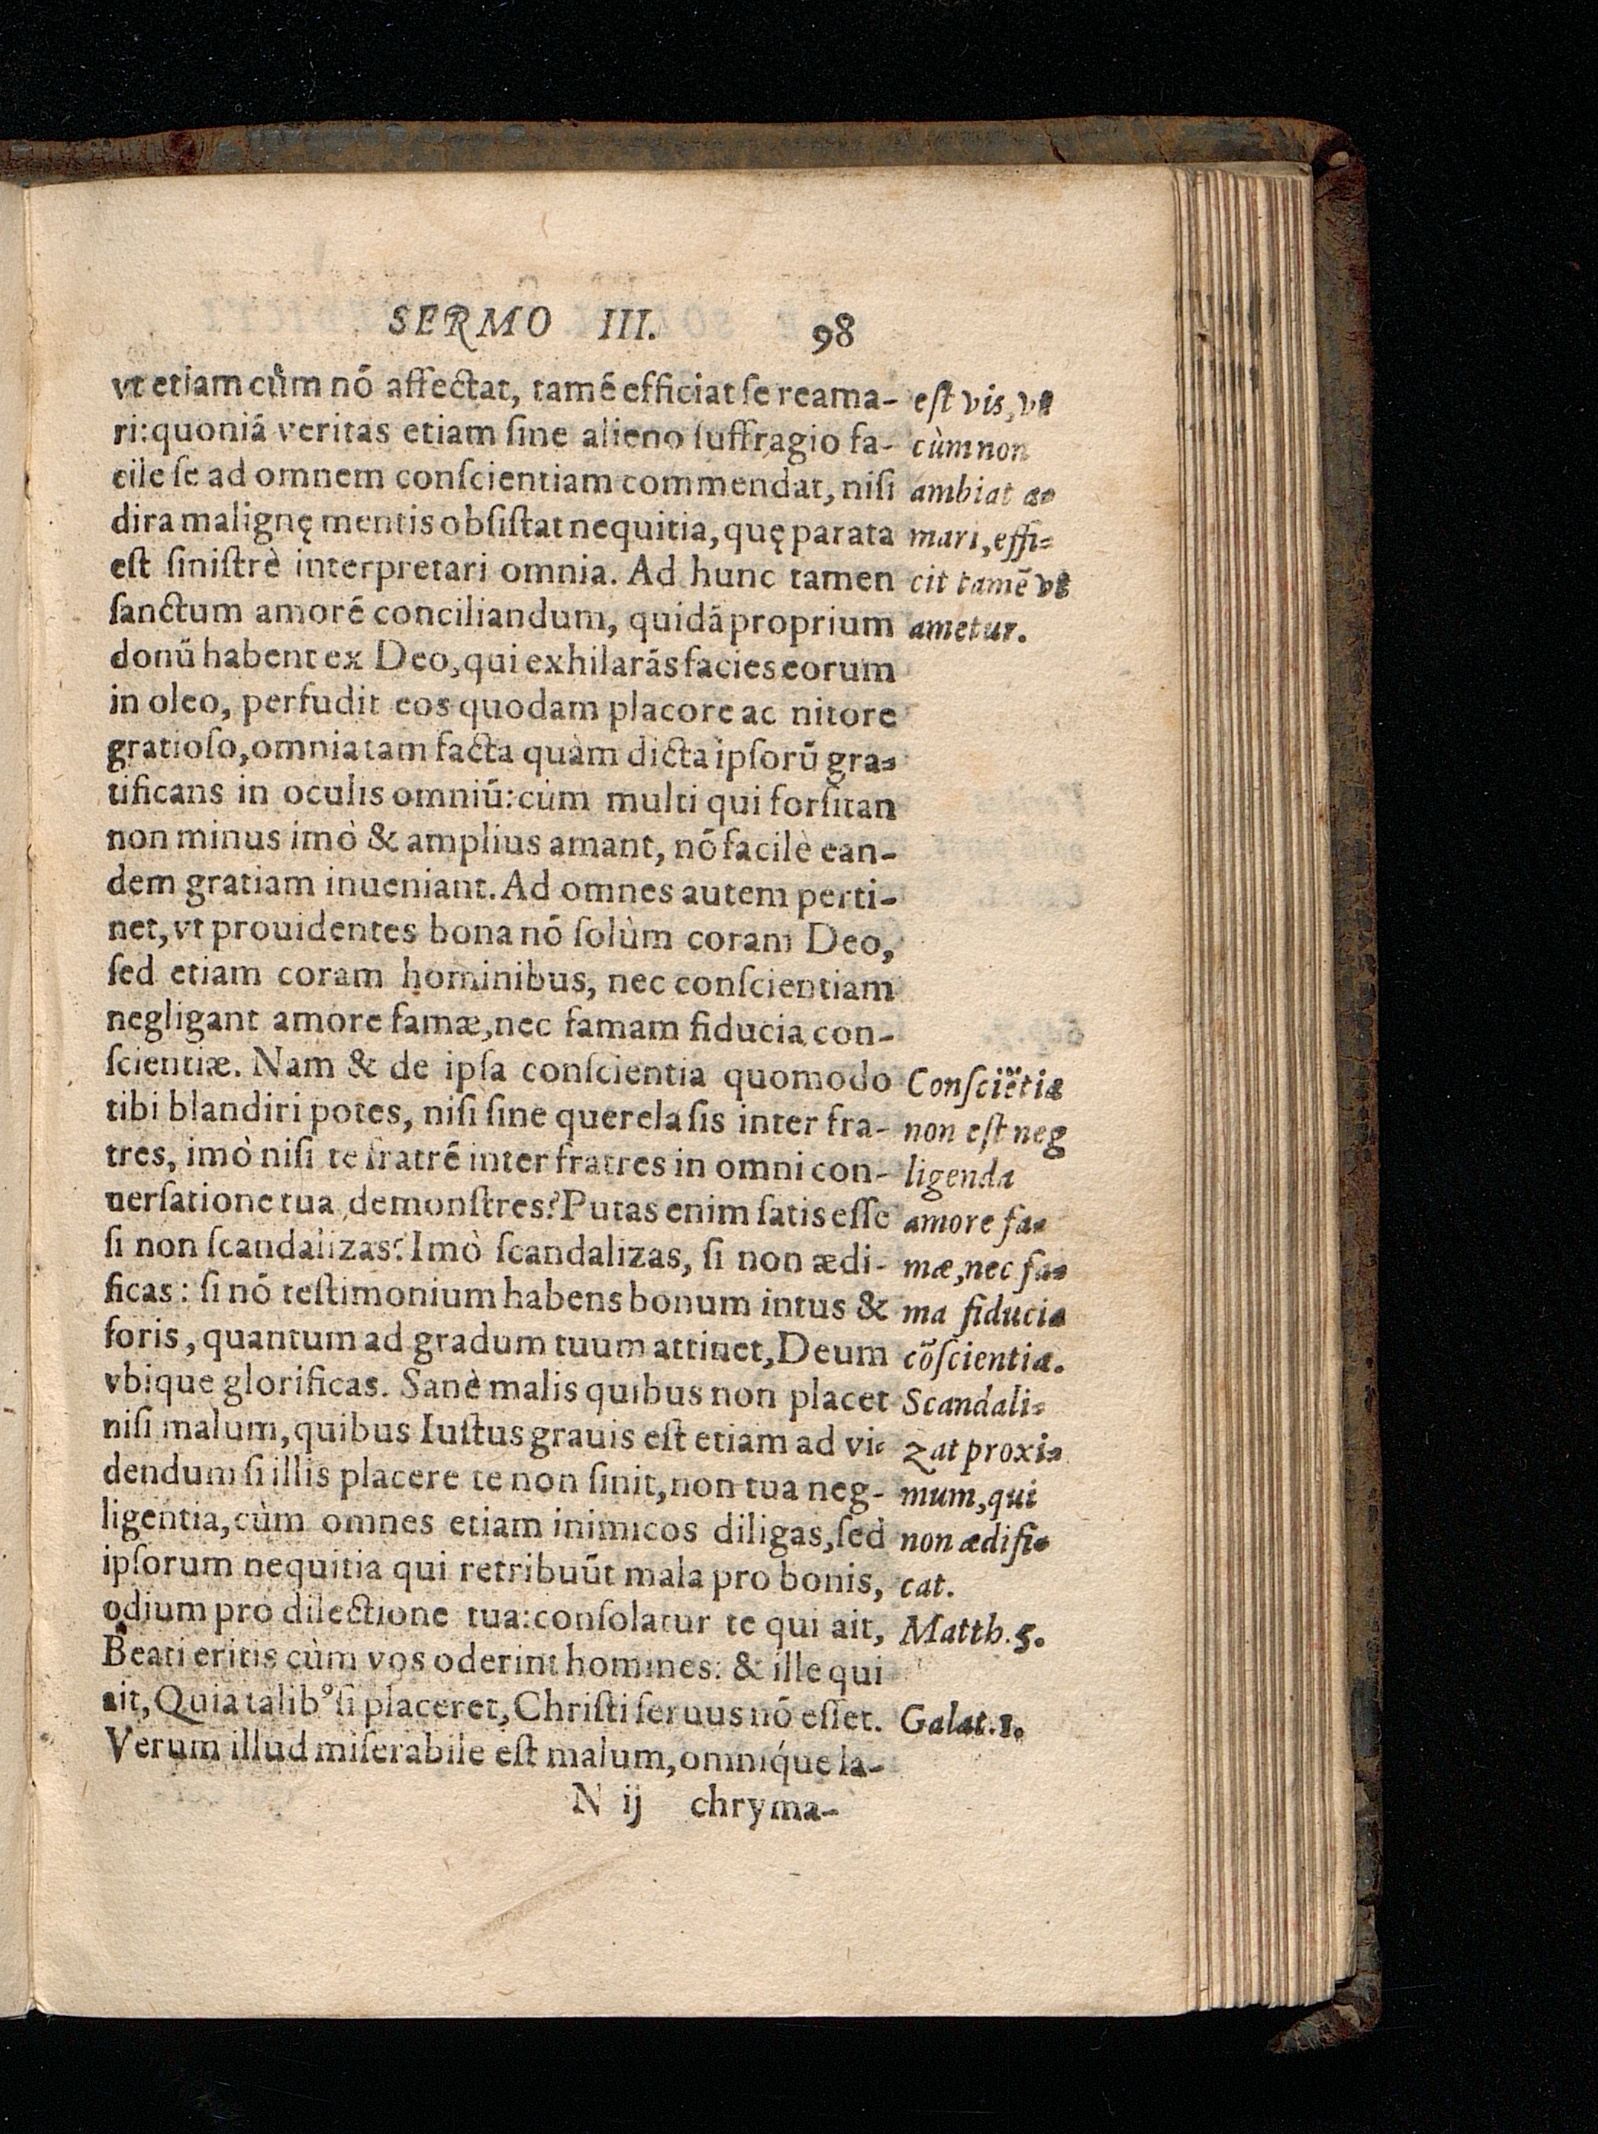 SERMO III. 98
vt etiam cùm nõ affectat, tamẽ efficiat ſe reama-
ri: quoniã veritas etiam ſine alieno ſuffragio fa-
cile ſe ad omnem conſcientiam commendat, niſi
dira malignę mentis obſiſtat nequitia, quę parata
eſt ſiniſtrè interpretari omnia. Ad hunc tamen
ſanctum amorẽ conciliandum, quidã proprium
donũ habent ex Deo, qui exhilarãs facies eorum
in oleo, perfudit eos quodam placore ac nitore
gratioſo, omnia tam facta quàm dicta ipſorũ gra-
tificans in oculis omniũ: cùm multi qui forſitan
non minus imò & amplius amant, nõ facilè ean-
dem gratiam inueniant. Ad omnes autem perti-
net, vt prouidentes bona nõ ſolùm coram Deo,
ſed etiam coram hominibus, nec conſcientiam
negligant amore famæ, nec famam fiducia con-
ſcientiæ. Nam & de ipſa conſcientia quomodo
tibi blandiri potes, niſi ſine querela ſis inter fra-
tres, imò niſi te fratrẽ inter fratres in omni con-
uerſatione tua demonſtres? Putas enim ſatis eſſe
ſi non ſcandalizas? Imò ſcandalizas, ſi non ædi-
ficas: ſi nõ teſtimonium habens bonum intus &
foris, quantum ad gradum tuum attinet, Deum
vbique glorificas. Sanè malis quibus non placet
niſi malum, quibus Iuſtus grauis eſt etiam ad vi-
dendum ſi illis placere te non ſinit, non tua neg-
ligentia, cùm omnes etiam inimicos diligas, ſed
ipſorum nequitia qui retribuũt mala pro bonis,
odium pro dilectione tua: conſolatur te qui ait,
Beati eritis cùm vos oderint homines: & ille qui
ait, Quia talibꝰ ſi placeret, Chriſti ſeruus nõ eſſet.
Verum illud miſerabile eſt malum, omniq́ue la-
N ij chryma-
eſt vis, vt
cùm non
ambiat a-
mari, effi-
cit tamẽ vt
ametur.
Conſciẽtia
non eſt neg
ligenda
amore fa-
mæ, nec fa-
ma fiducia
cõſcientiæ.
Scandali-
zat proxi-
mum, qui
non ædifi-
cat.
Matth. 5.
Galat. 1.